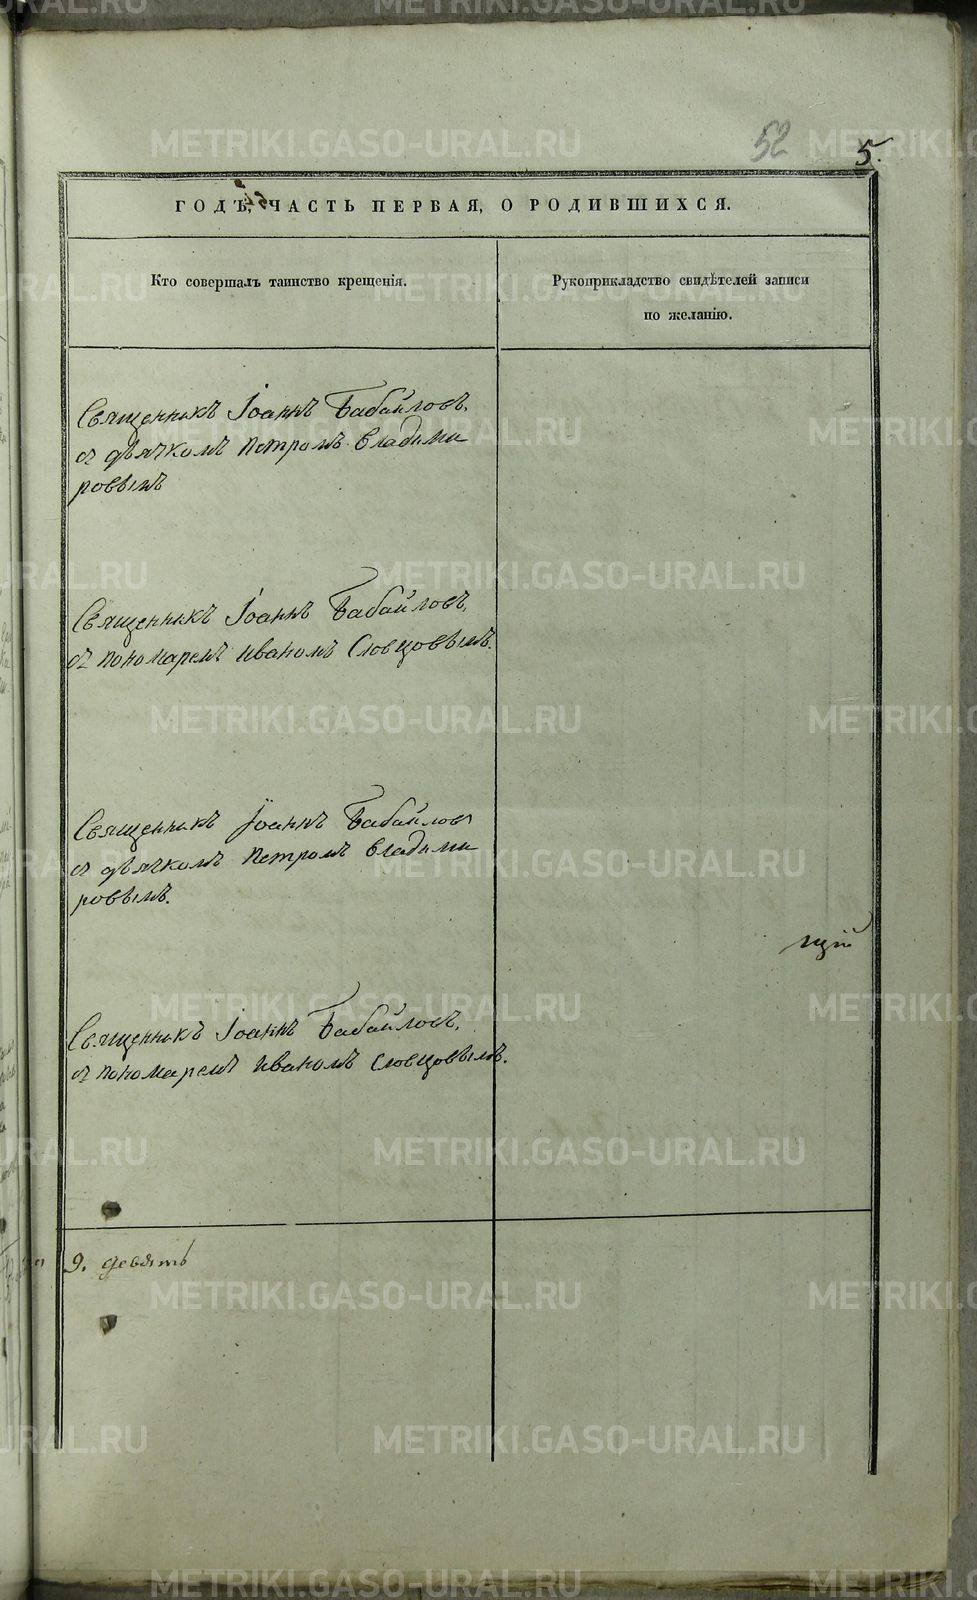 52
5.
ГОДЪ, ЧАСТЬ ПЕРВАЯ, О РОДИВШИХСЯ.
Кто совершалъ таинство крещенія.
Рукоприкладство свидѣтелей записи
по желанію.
Священникъ Іоаннъ Бабайловъ,
съ дьячкомъ Петромъ Влади́ми
ровымъ
Священникъ Іоаннъ Бабайловъ,
съ пономаремъ Иваномъ Словцовымъ.
Священникъ Іоаннъ Бабайловъ
съ дьячкомъ Петромъ Владими
ровымъ.
щій
Священникъ Іоаннъ Бабайловъ,
съ пономаремъ Иваномъ Словцовымъ.
9. девять
METRIKI.GASO-URAL.RU